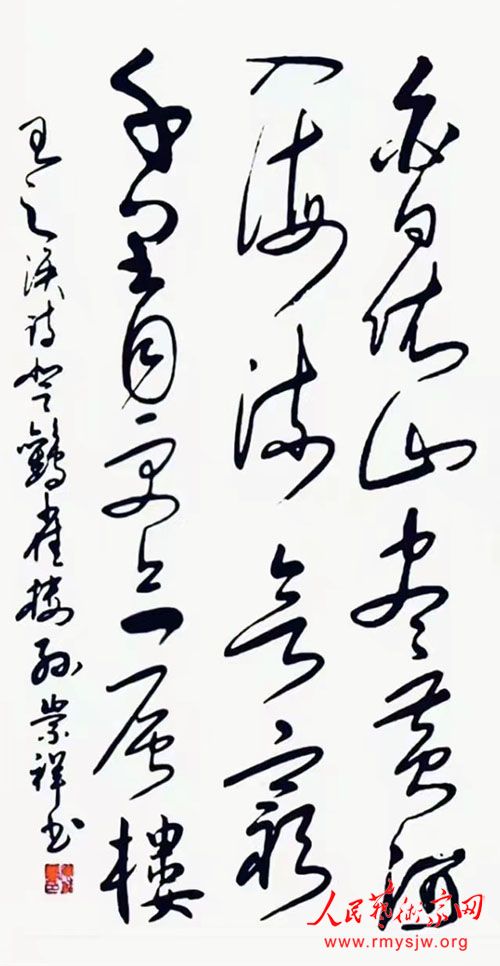 白日依山尽黄河
入海流欲窮
千里目更上一层樓
王之涣诗登鸛雀楼孙崇祥书
人民藝術家网
www.rmysjw.org